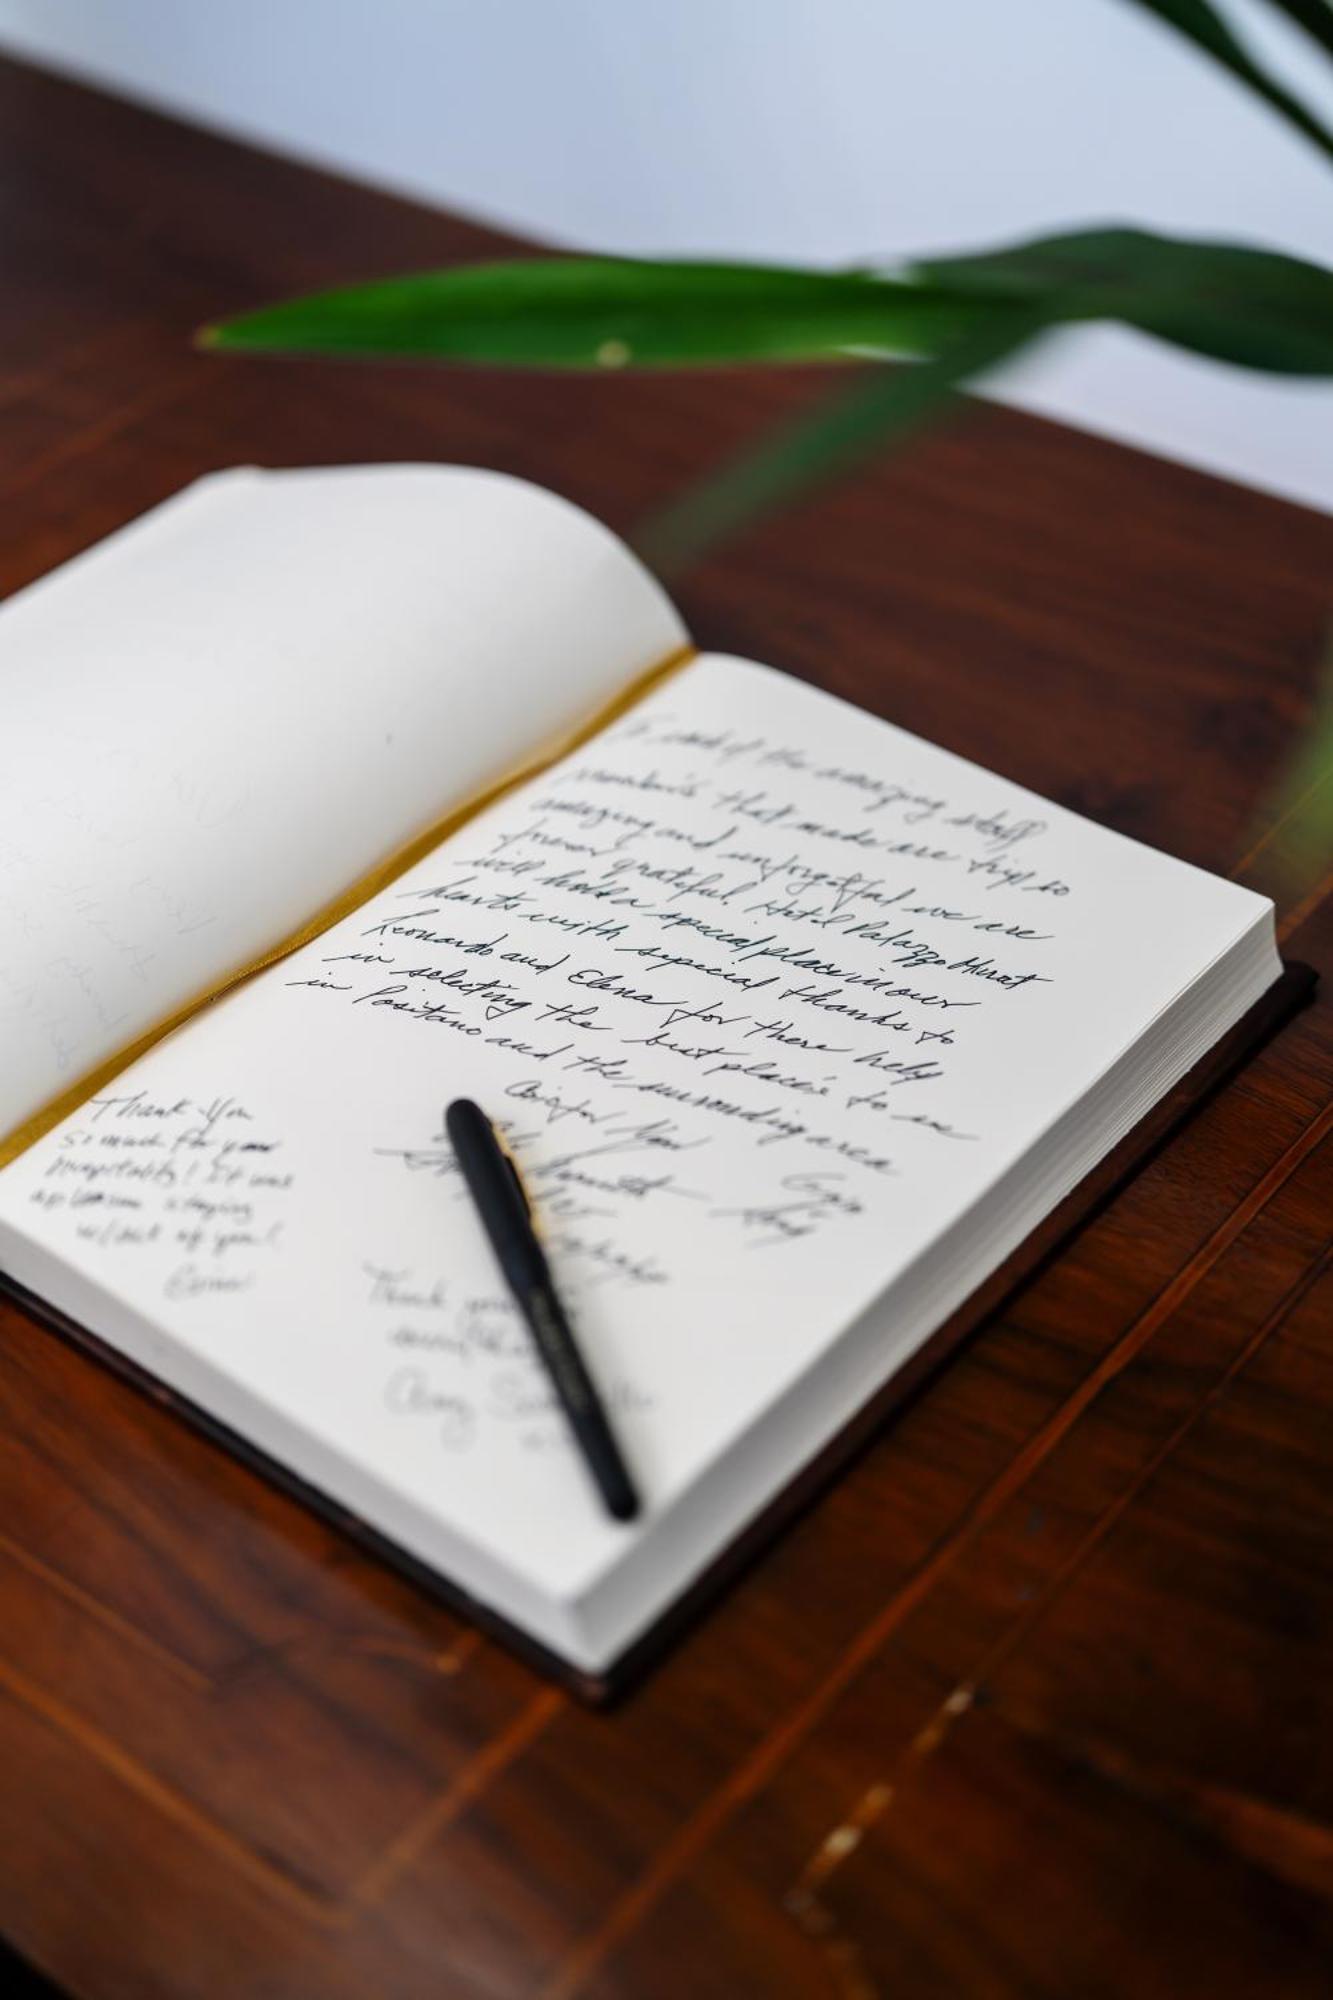 To each of the amazing staff
member's that made are trip so
amazing and unforgetful we are
forever grateful. Hotel Palazzo Murat
will hold a special place in our
hearts with sepecial thanks to
Leonardo and Elena for there help
in selecting the best place's to see
in Positano and the surronding area
Thank You
So much for your
hospitality! It was
a pleasure staying
w/all of you!
Thank you
Amy